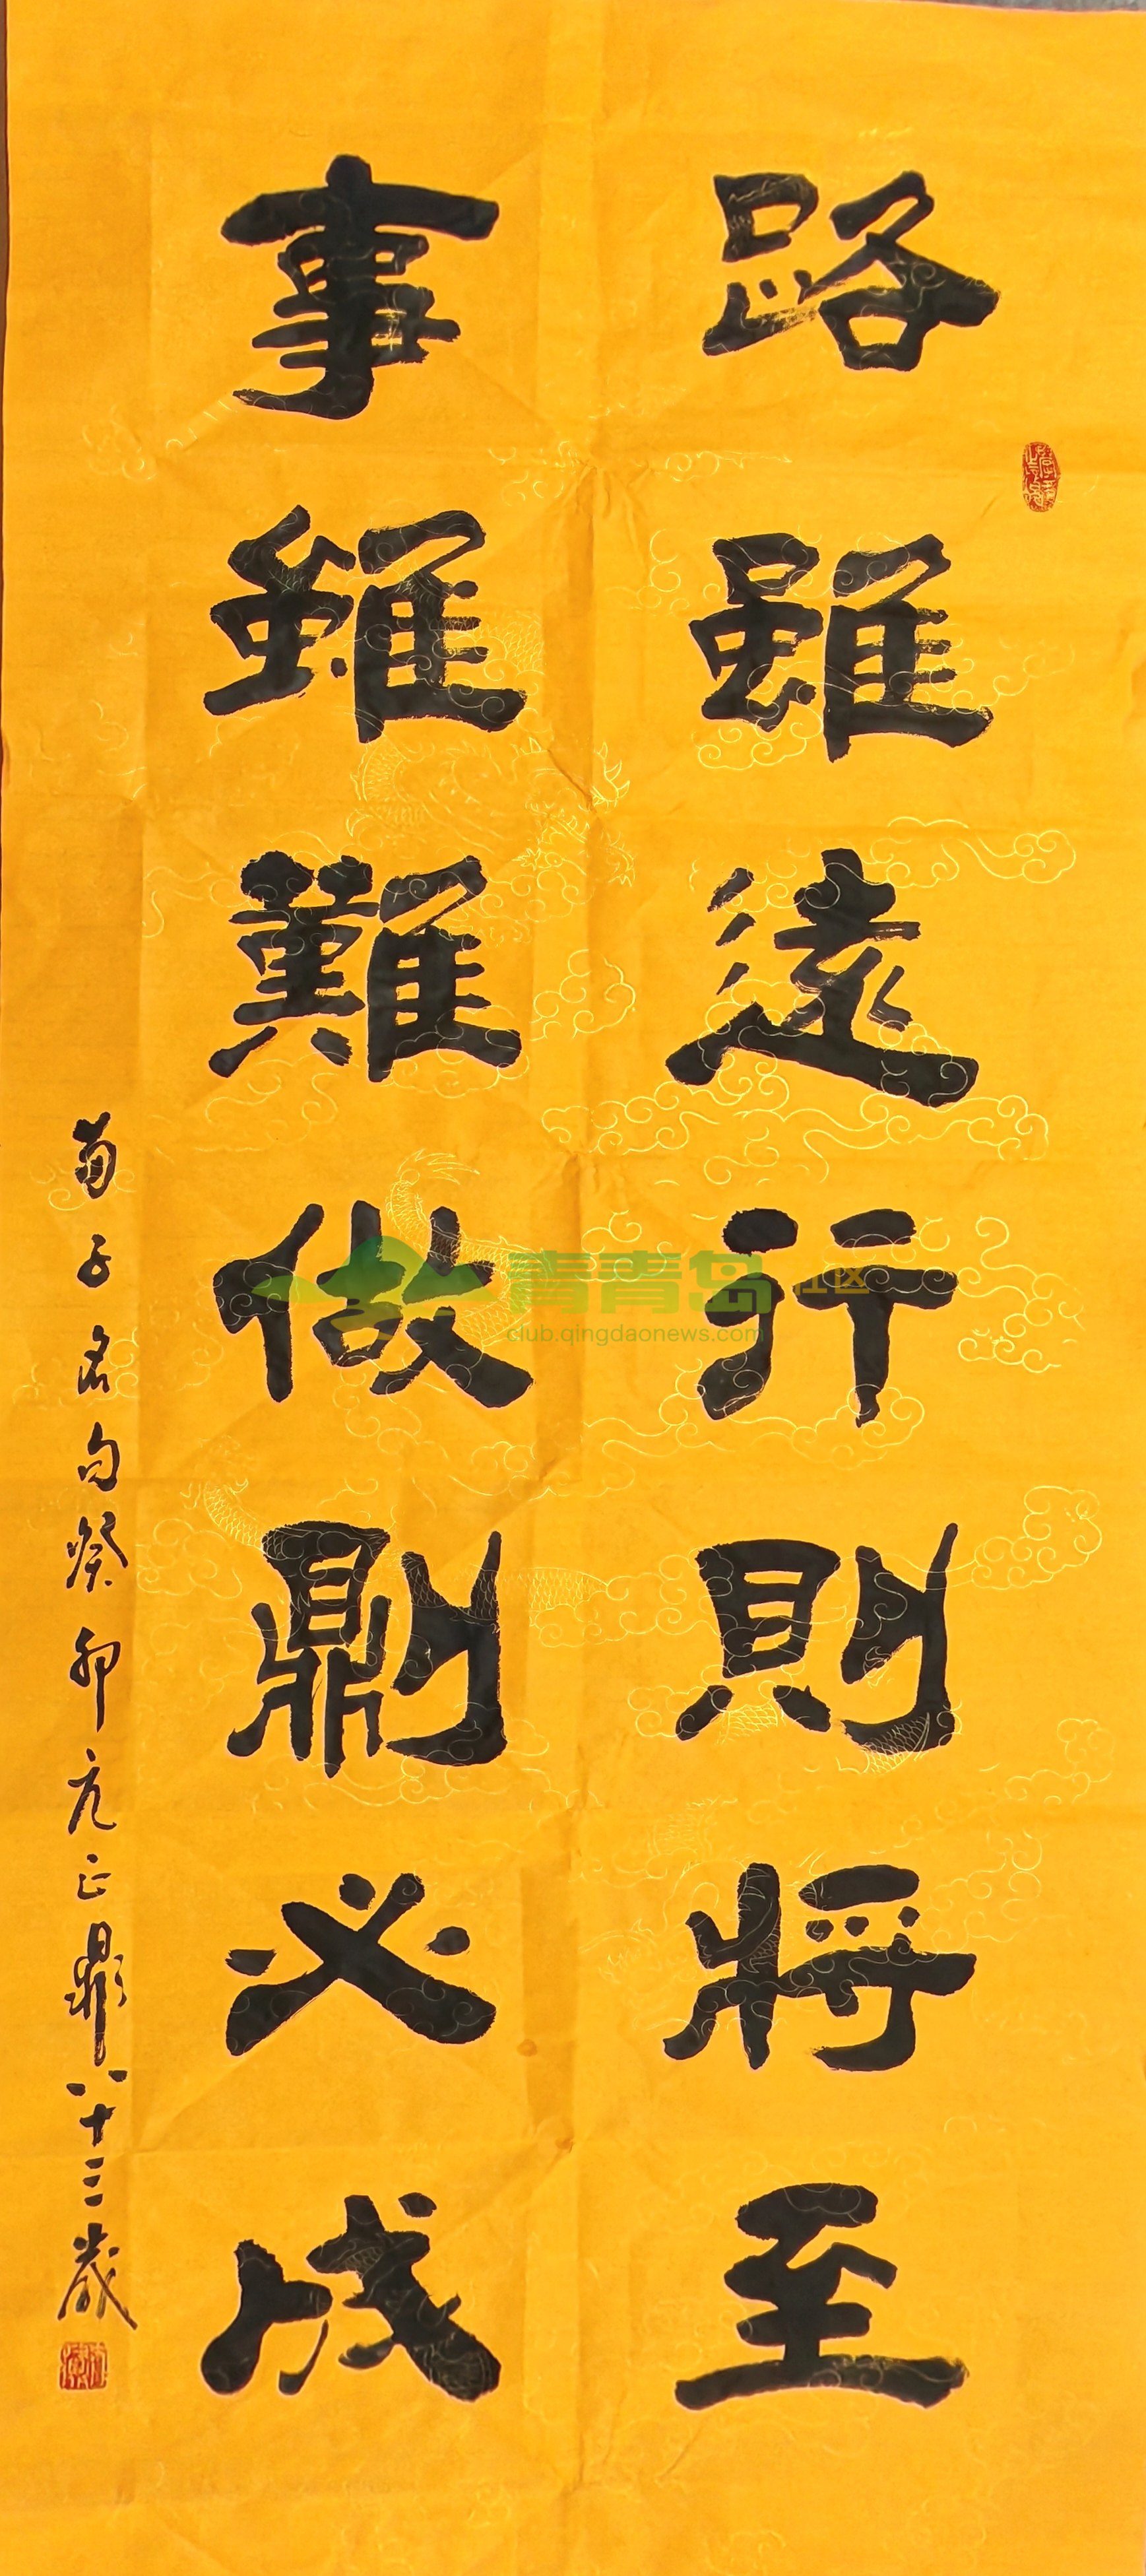 路雖遠行則將至
事雖難做鼎刂必成
荀子名句癸卯亢正鼎八十三歲
青青岛社区
club.qingdaonews.com